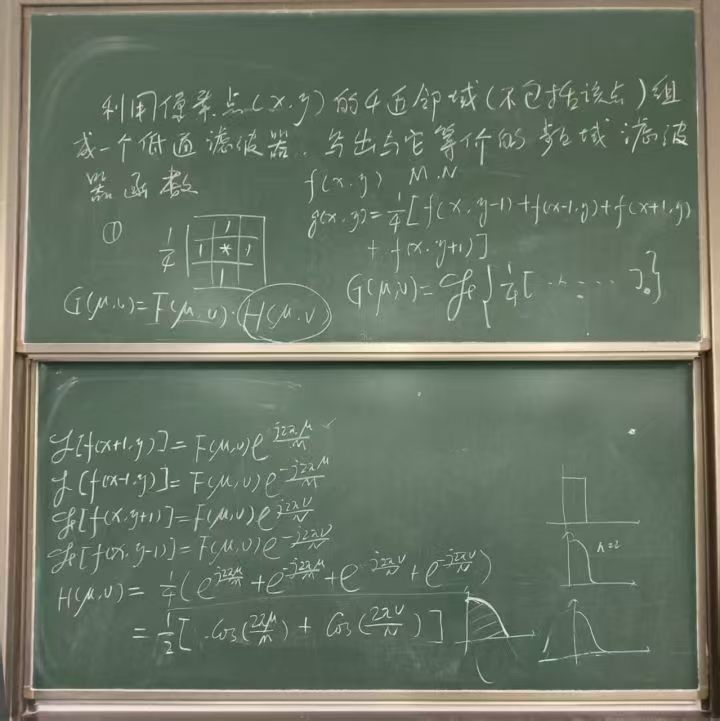 利用像素点(x,y)的4近邻域(不包括该点)组
成一个低通滤波器.写出与它等价的频域滤波
器函数
f(x,y) M.N
g(x,y)=1/4[f(x,y-1)+f(x-1,y)+f(x+1,y)
+f(x,y+1)]
①
1/4
1
1 * 1
1
G(μ,υ)=F(μ,υ)·H(μ,υ)
G(μ,υ)=ℱ{1/4[......]}
ℱ[f(x+1,y)]=F(μ,υ)e^{j2πμ/M}
ℱ[f(x-1,y)]=F(μ,υ)e^{-j2πμ/M}
ℱ[f(x,y+1)]=F(μ,υ)e^{j2πυ/N}
ℱ[f(x,y-1)]=F(μ,υ)e^{-j2πυ/N}
H(μ,υ)=1/4(e^{j2πμ/M}+e^{-j2πμ/M}+e^{j2πυ/N}+e^{-j2πυ/N})
=1/2[cos(2πμ/M)+cos(2πυ/N)]
n=2